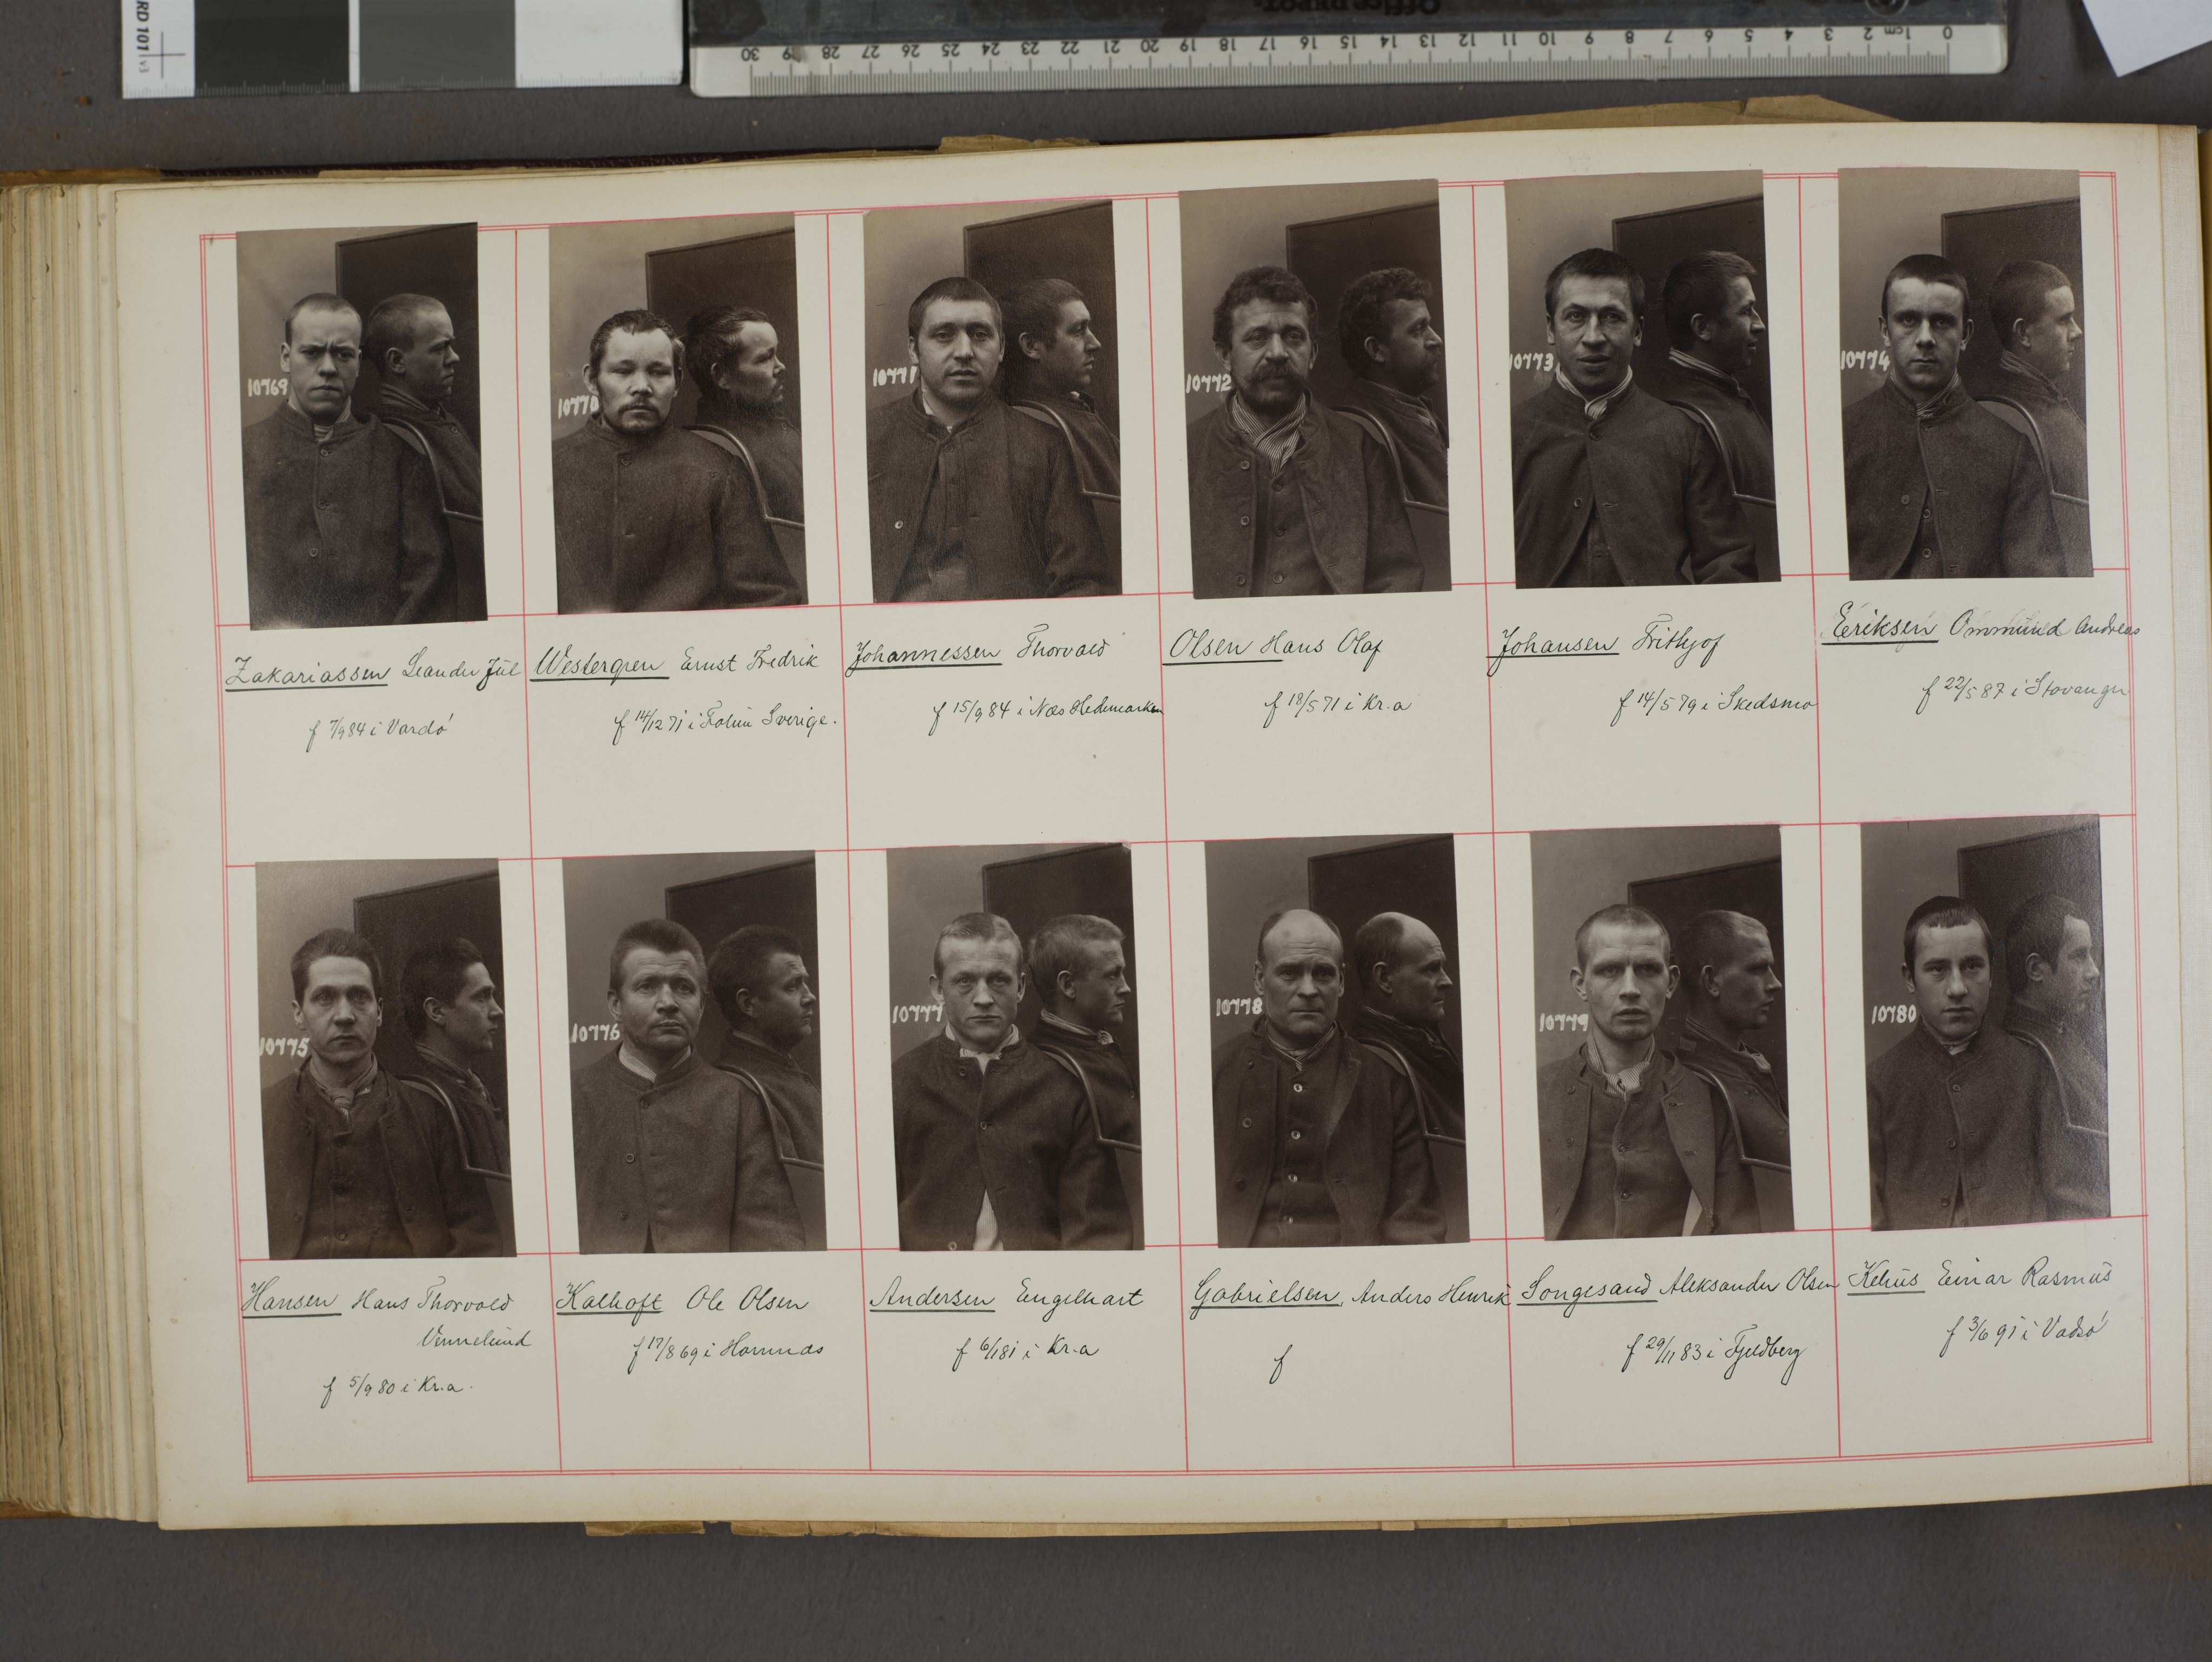 RD 101 v3
Office DEPOT
0 1cm 2 3 4 5 6 7 8 9 10 11 12 13 14 15 16 17 18 19 20 21 22 23 24 25 26 27 28 29 30
10769
10770
10771
10772
10773
10774
Zakariassen Leander Jul
f 7/9 84 i Vardö
Westergren Ernst Fredrik
f 14/12 71 i Sverige.
Johannessen Thorvald
f 15/9 84 i Næs Hedemarken
Olsen Hans Olaf
f 18/5 71 i Kr.a
Johansen Frithjof
f 14/5 79 i Skedsmo
Eriksen Ommund Andreas
f 22/5 87 i Stavanger
10775
10776
10777
10778
10779
10780
Hansen Hans Thorvald
Vennelund
f 5/9 80 i Kr.a.
Kalhoft Ole Olsen
f 17/8 69 i Hornnæs
Andersen Engelhart
f 6/1 81 i Kr.a
Gabrielsen, Anders Henrik
f
Songesand Aleksander Olsen
f 29/11 83 i Fjeldberg
Einar Rasmus
f 3/6 91 i Vadsö